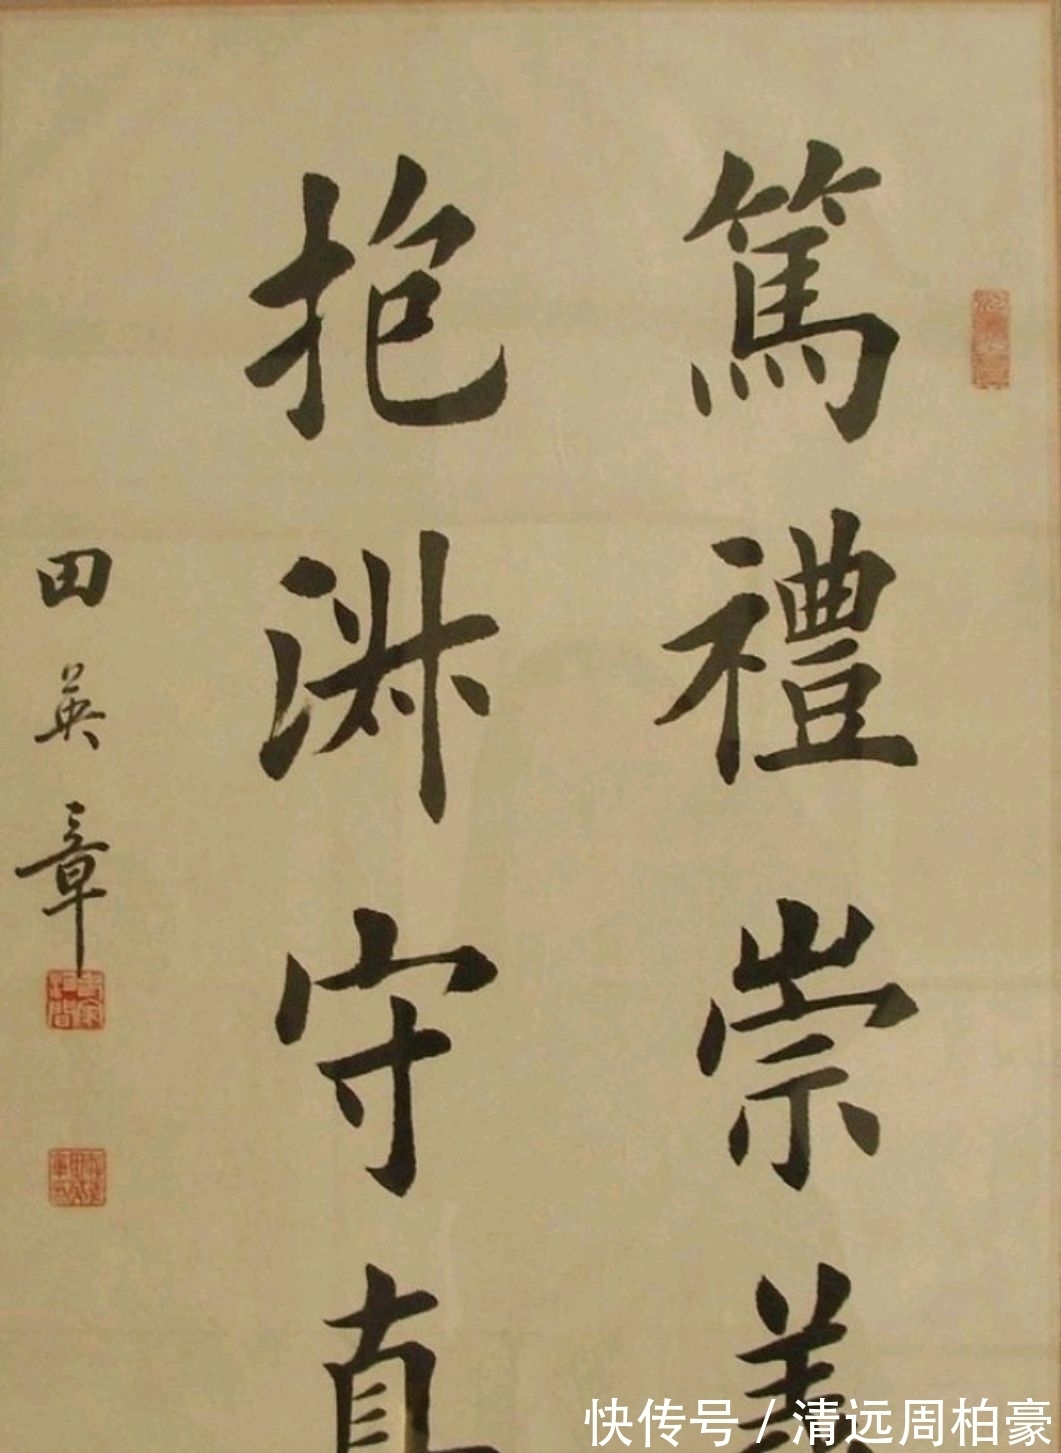 篤禮崇義
抱守真
田英章
快传号 / 清远周柏豪